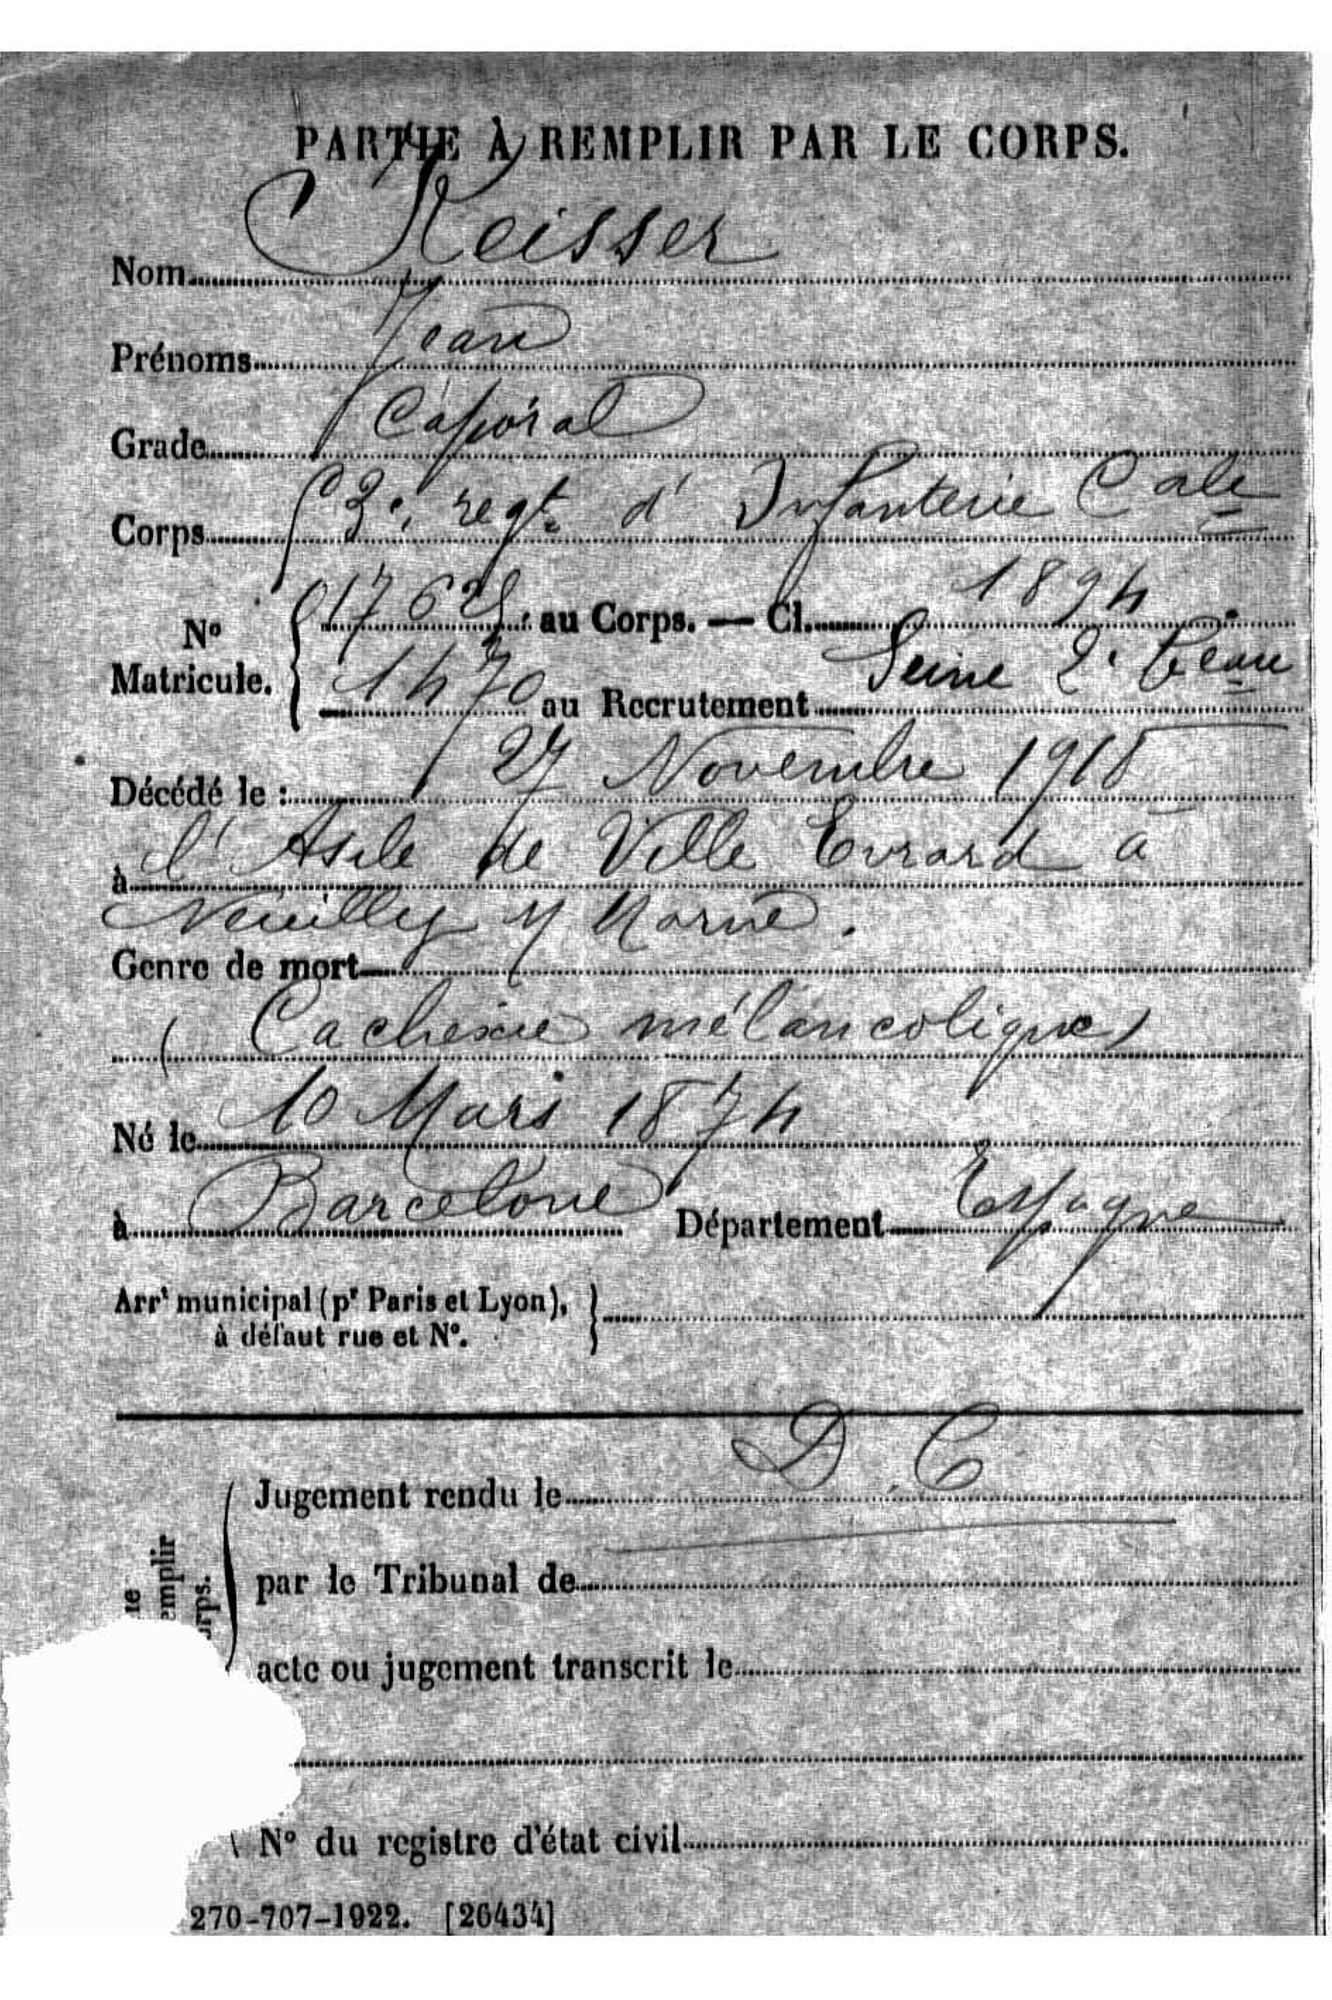 PARTIE À REMPLIR PAR LE CORPS.
Nom Keisser
Prénoms Jean
Grade Caporal
Corps 3e regt d'Infanterie Cale
No Matricule. 17625 au Corps. — Cl. 1894
1470 au Recrutement Seine 2e Beau
Décédé le : 27 Novembre 1918
à l'Asile de Ville Evrard à
Neuilly s/ Marne.
Genre de mort
(Cachexie mélancolique)
Né le 10 Mars 1874
à Barcelone Département Espagne
Arrt municipal (pr Paris et Lyon),
à défaut rue et No.
D.C
Jugement rendu le
par le Tribunal de
acte ou jugement transcrit le
No du registre d'état civil
270-707-1922. [26434]